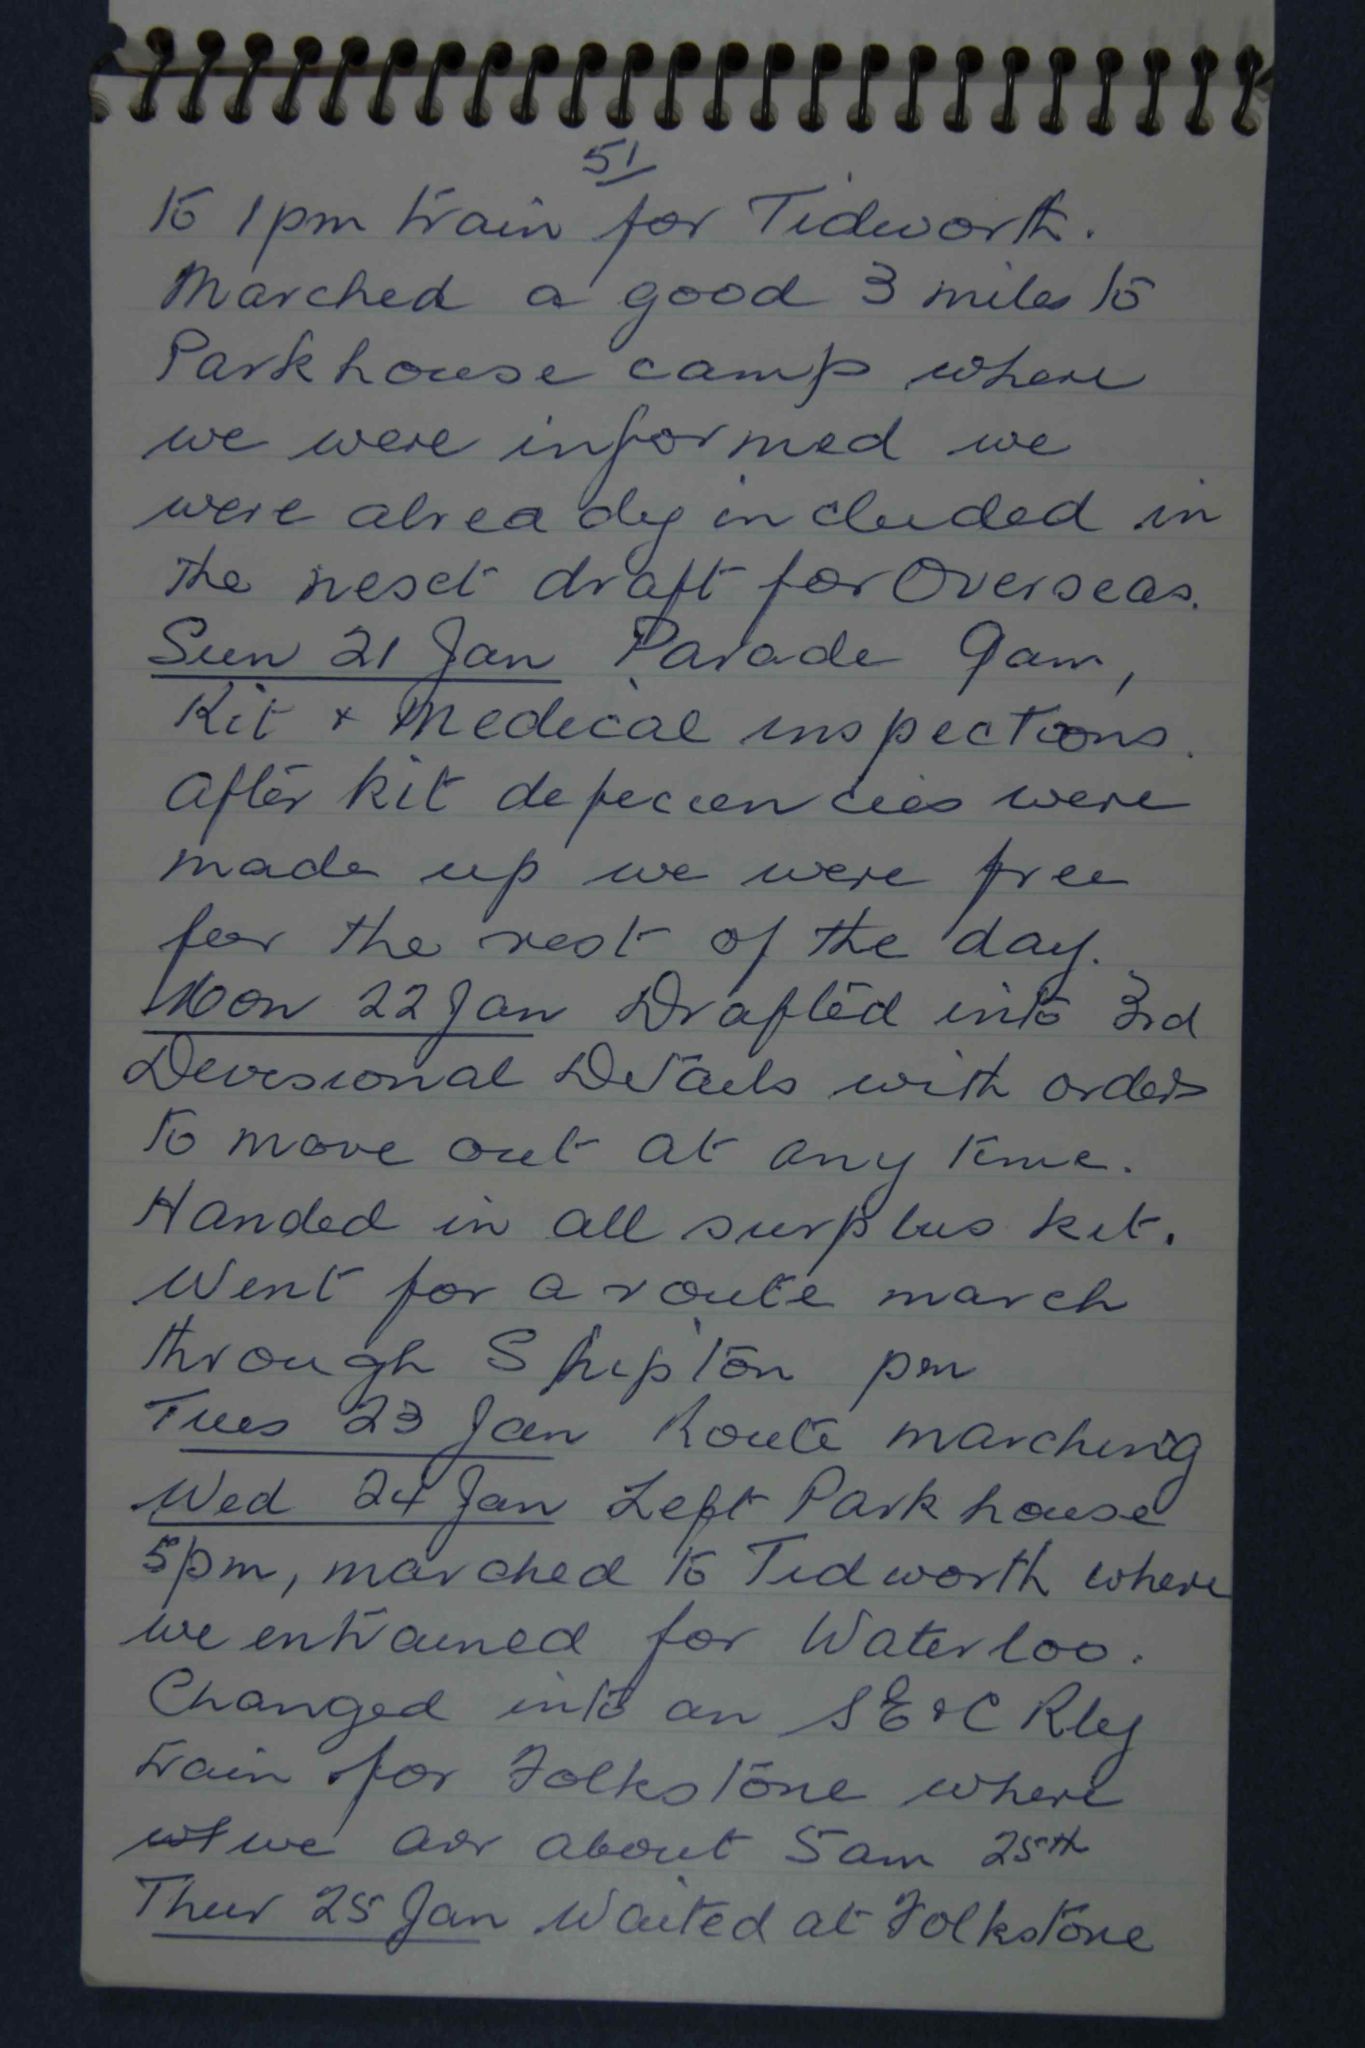 51
to 1pm train for Tidworth.
Marched a good 3 miles to
Parkhouse camp where
we were informed we
were already included in
the next draft for Overseas.
Sun 21 Jan Parade 9am,
Kit + Medical inspections.
After kit defeciencies were
made up we were free
for the rest of the day.
Mon 22 Jan Drafted into 3rd
Divisional Details with orders
to move out at any time.
Handed in all surplus kit.
Went for a route march
through Shipton pm
Tues 23 Jan Route marching
Wed 24 Jan Left Parkhouse
5pm, marched to Tidworth where
we entrained for Waterloo.
Changed into an SE & C Rly
train for Folkstone where
we arr about 5am 25th
Thur 25 Jan Waited at Folkstone